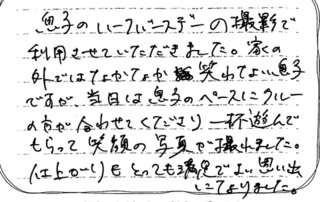 息子のハーフバースデーの撮影で
利用させていただきました。家の
外ではなかなか笑わない息子
ですが、当日は息子のペースにクルー
の方が合わせてくださり一杯遊んで
もらって笑顔の写真が撮れました。
仕上がりもとっても満足でよい思い出
になりました。